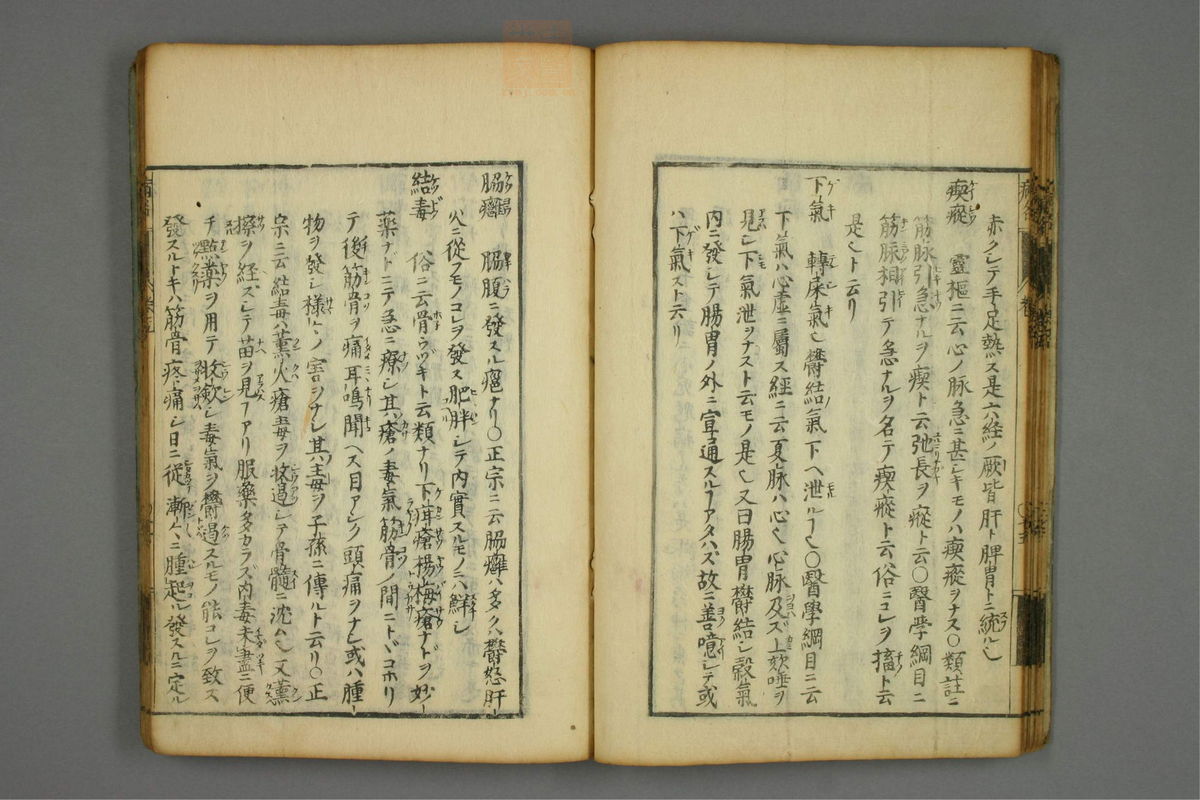 赤クレテ手足熱ス是六経ノ厥皆肝ト脾胃トニ統ル乄
瘈瘲 靈樞ニ云心ノ脉急ニ甚シキモノハ瘈瘲ヲナス〇類註ニ
筋脉引急ナルヲ瘈ト云弛長ヲ瘲ト云〇醫學綱目ニ
筋脉相引テ急ナルヲ名テ瘈瘲ト云俗ニコレヲ搐ト云
是也ト云リ
下氣 轉屎氣也欝結氣下ヘ泄ルヿ也〇醫學綱目ニ云
下氣ハ心虚ニ屬ス經ニ云夏脉ハ心也心脉及ズ上欬唾ヲ
見シ下氣泄ヲナスト云モノ是也又曰腸胃欝結シ穀氣
内ニ發シテ腸胃ノ外ニ宣通スルヿアタハズ故ニ善噫シテ或
ハ下氣スト云リ
脇癰 脇腹ニ發スル癰ナリ〇正宗ニ云脇癰ハ多クハ欝怒肝
火ニ從フモノコレヲ發ス肥胖シテ内實スルモノニハ鮮シ
結毒 俗ニ云骨ウヅキト云類ナリ下疳瘡楊梅瘡ナドヲ妙
薬ナドニテ急ニ療シ其瘡ノ毒氣筋骨ノ間ニトヾコホリ
テ後筋骨ヲ痛耳鳴聞ヘス目アシク頭痛ヲナシ或ハ腫
物ヲ發シ様々ノ害ヲナシ其毒ヲ子孫ニ傳ルト云リ〇正
宗ニ云結毒ハ薫火瘡毒ヲ收遏シテ骨髓ニ沈ム也又薫
擦ヲ経ズシテ苗ヲ見アリ服藥多カラズ内毒未盡ニ便
チ點薬ヲ用テ收歛シ毒氣ヲ欝遏スルモノ能コレヲ致ス
發スルトキハ筋骨疼痛シ日ニ從漸々ニ腫起ル發スルニ定ル